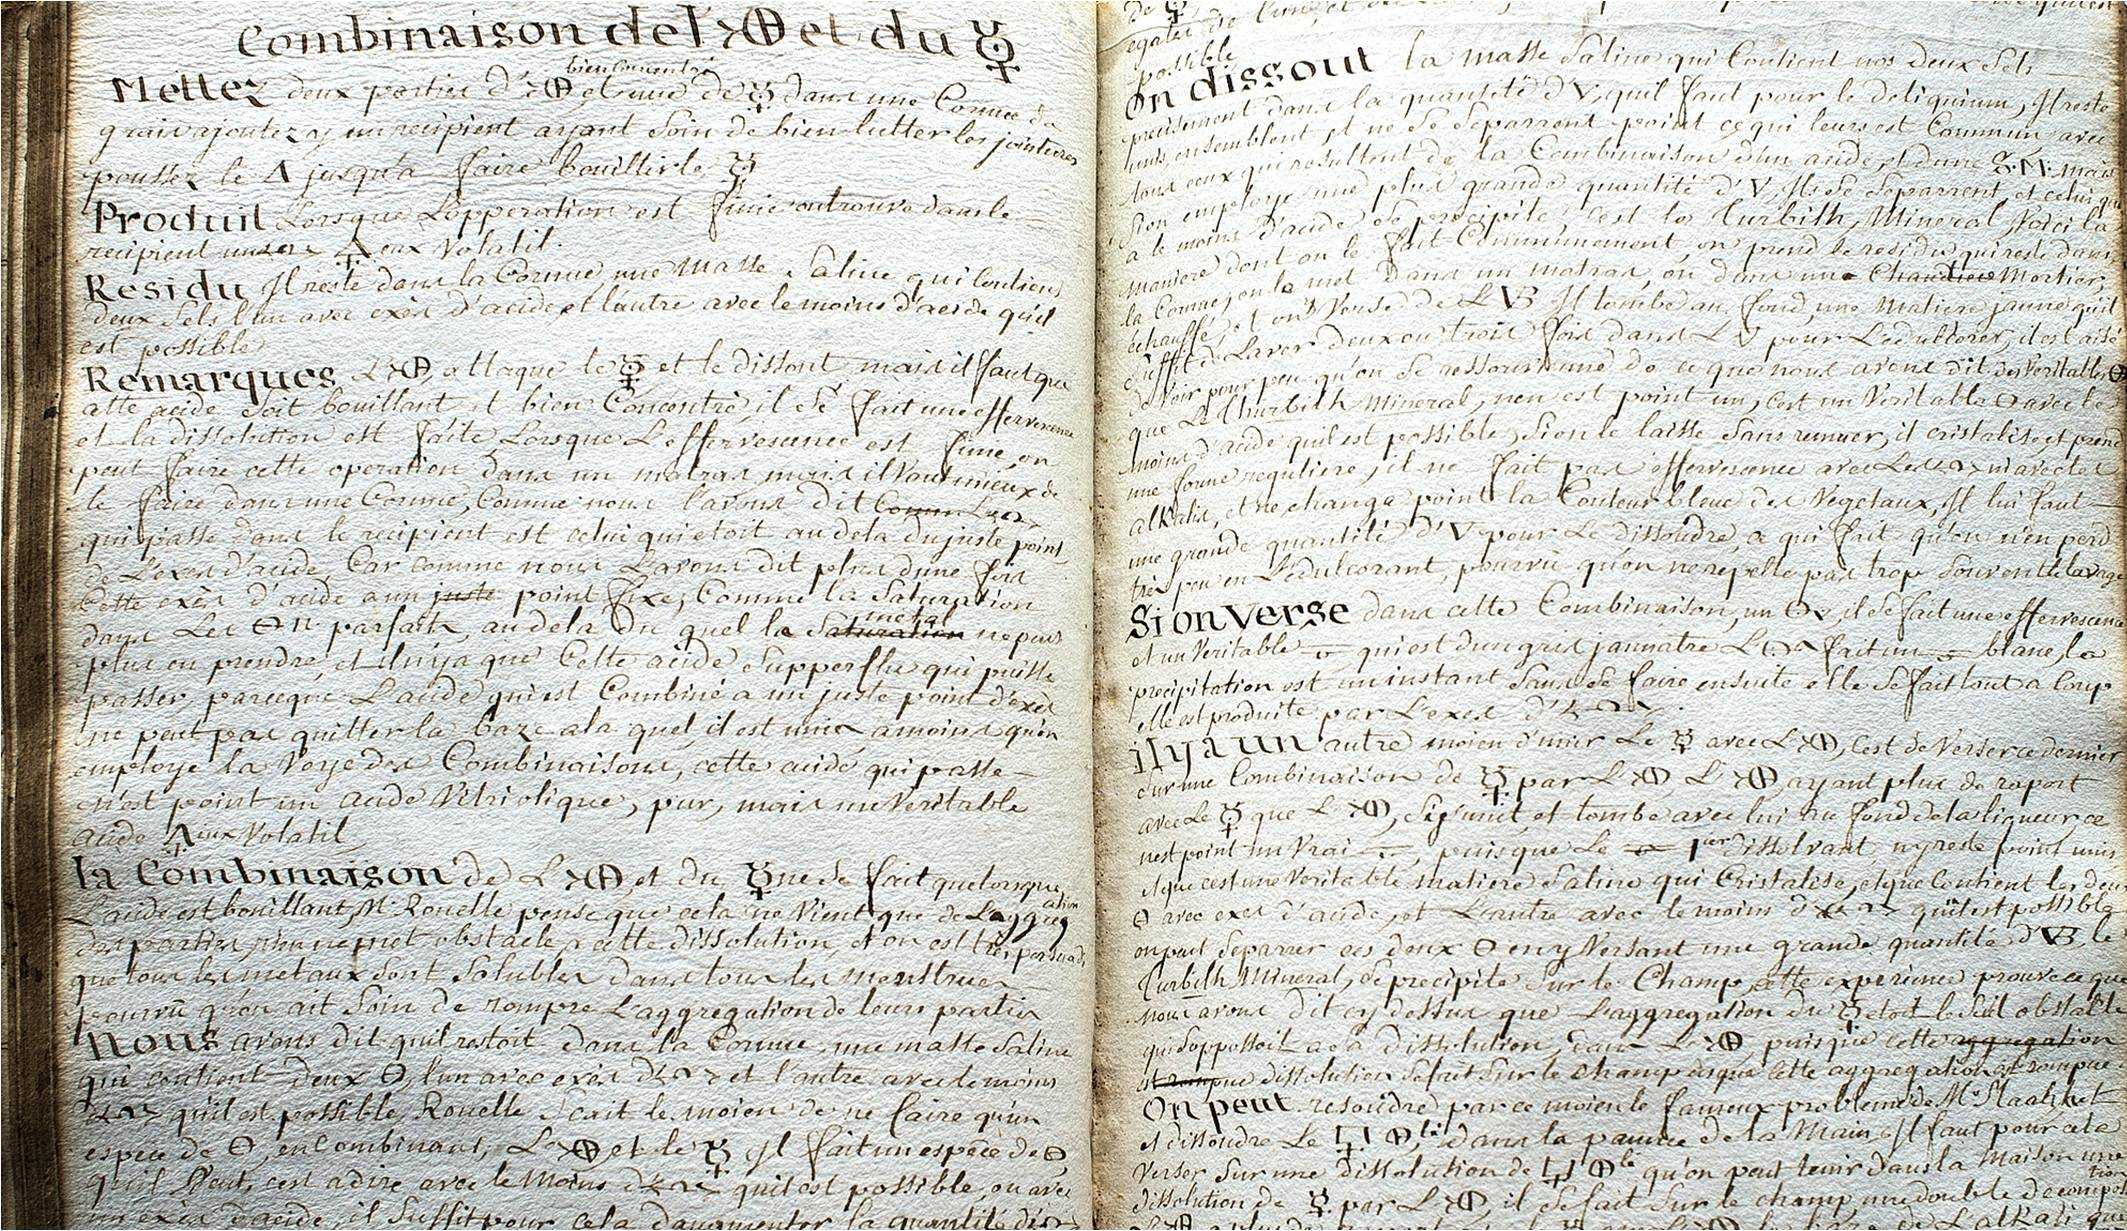 Combinaison de l'🜖 et du ☿
bien concentré
Mettez deux parties d'🜖 et une de ☿ dans une Cornue de
grais ajoutez y un recipient ayant soin de bien lutter les jointures
poussez le 🜂 jusqu'a faire bouillir le ☿
Produit Lorsque L'opperation est finie on trouve dans le
recipient un 🜍eux Volatil.
Residu Il reste dans la Cornue une Masse Saline qui Contient
deux Sels l'un avec exès d'acide, et l'autre avec le moins d'acide qu'il
est possible
Remarques L'🜖 attaque le ☿ et le dissout, mais il faut que
cette acide soit bouillant et bien Concentré, il se fait une effervescence
et la dissolution est faite Lorsque L'effervescence est finie, on
peut faire cette operation dans un matras mais il Vaut mieux de
le faire dans une Cornue, Comme nous l'avons dit
qui passe dans le recipient est celui qui etoit au dela du juste point
de L'exès d'acide, Car comme nous L'avons dit plus d'une fois
Cette exès d'acide a un juste point fixe, Comme la Saturation
metal
dans Les 🜔 parfaits, au dela du quel la Saturation ne peut
plus en prendre, et il n'y a que Cette acide Supperflu qui puisse
passer, parceque L'acide qui est Combiné a un juste point d'exès
ne peut pas quitter la baze a la quel, il est unie, a moins qu'on
employe la Voye des Combinaisons, cette acide qui passe
n'est point un acide Vitriolique, pur, mais un Veritable
acide 🜍eux Volatil
la Combinaison de L'🜖 et du ☿ ne se fait que lorsque
l'acide est bouillant, Mr Rouelle pense que cela ne Vient que de L'aggregation
des parties, qui met obstacle a cette dissolution, et on est tres persuadé
que tous les metaux sont Solubles dans tous les menstrues
pourvû qu'on ait Soin de rompre L'aggregation de leurs parties
Nous avons dit qu'il restoit dans la Cornue, une masse Saline
qui contient deux 🜔, l'un avec exès d'acide et l'autre avec le moins
qu'il est possible, Rouelle Scait le moien de ne faire qu'un
espece de 🜔, en Combinant, L'🜖 et le ☿ Il fait un espèce de 🜔,
qu'il Veut, c'est a dire avec le Moins d'acide qu'il est possible, ou avec
un exès d'acide, il Suffit pour cela d'augmenter la quantité
de ☿
possible
On dissout la masse Saline qui Contient nos deux Sels
precisement dans la quantité d'🜄, qu'il faut pour le deliquium, Il reste
unis, ensemblent et ne Se Separrent point ce qui leurs est Commun avec
tous ceux qui resultent de la Combinaison d'un acide, et d'une S. M. mais
Si on employe une plus grande quantité d'🜄, Ils se Separrent et celui qui
a le moins d'acide se precipite, c'est le Turbith Mineral, Voici la
maniere dont on le fait Communement, on prend le residu qui reste dans
la Cornue, on le met dans un matras, ou dans une Chaudiere Mortier,
echauffé, et on Verse de L'🜄B Il tombe au fond une Matiere jaune qu'il
Suffit de Laver deux ou trois fois dans L'🜄 pour L'edulcorer, il est aisé
de Voir pour peu qu'on Se ressouvienne de ce que nous avons dit, des Veritables 🜔
que Le Thurbith Mineral, n'en est point un, c'est un Veritable 🜔 avec le
moins d'acide qu'il est possible, Si on le laisse Sans remuer, il cristalise, et prend
une forme reguliere, il ne fait pas effervescence avec Les acides ni avec les
alkalis, et ne change point la Couleur bleue des Vegetaux, Il lui faut
une grande quantité d'🜄 pour Le dissoudre, ce qui fait qu'on n'en perd
très peu en L'edulcorant, pourvû qu'on ne repette pas trop Souvent le lavage
Si on Verse dans cette Combinaison, un il se fait une effervescence
et un Veritable qui est d'un gris jaunatre fait un blanc, la
precipitation est un instant Sans se faire ensuite elle se fait tout a Coup
elle est produite par L'exès d'acide.
il y a un autre moien d'unir Le ☿ avec L'🜖, C'est de Verser ce dernier
sur une Combinaison de ☿ par L' L'🜖 ayant plus de raport
avec Le ☿ que L' , S'y unit, et tombe avec lui au fond de la liqueur, ce
n'est point un Vrai , puisque Le 1er dissolvant n'y reste point unis
et que c'est une Veritable matiere Saline qui Cristalise, et qui Contient les deux
🜔 avec exès d'acide, et L'autre avec le moins d'acide qu'il est possible
on peut Separrer ces deux 🜔 en y Versant une grande quantité d'🜄B, le
Turbith Mineral, Se precipite Sur le Champ, cette experience prouve ce que
nous avons dit cy dessus que L'aggregation du ☿ etoit le Seul obstacle
qui S'oppossoit a sa dissolution, dans L'🜖, puisque cette aggregation
est rompue dissolution se fait Sur le champ des que cette aggregation est rompue
On peut resoudre par ce moien le fameux probleme de Mr Staalh
et dissoudre Le dans la paume de la Main, Il faut pour cela
Verser Sur une dissolution de qu'on peut tenir dans la Maison une
dissolution de ☿ par L' , il se fait Sur le champ une double decomposition